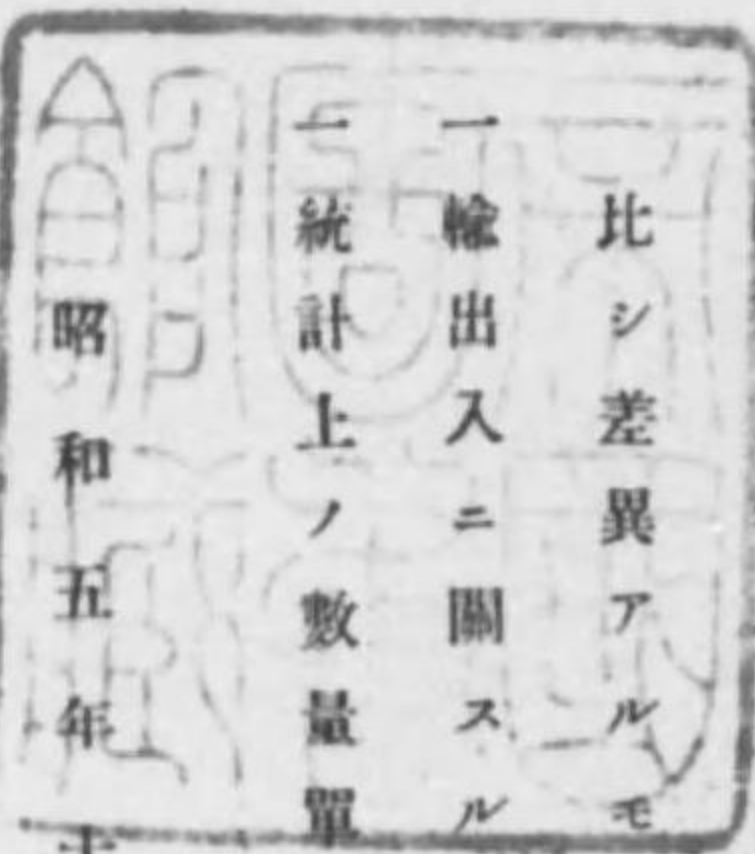 比シ差異アルモ
一輸出入ニ關スル
一統計上ノ數量單
昭和五年十